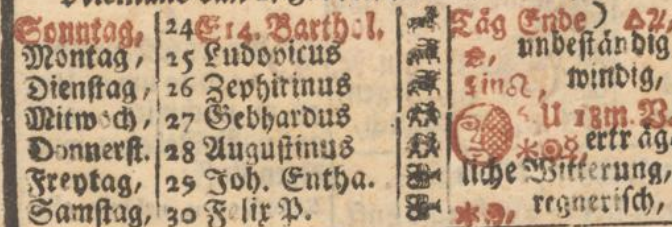 Sonntag, 24 E 14. Barthol. Täg Ende) △2
Montag, 25 Ludovicus unbeständig
Dienstag, 26 Zephirinus in ♌, windig,
Mitwoch, 27 Gebhardus U 18m.
Donnerst. 28 Augustinus erträg-
Freytag, 29 Joh. Entha. liche Witterung,
Samstag, 30 Felix P. regnerisch,